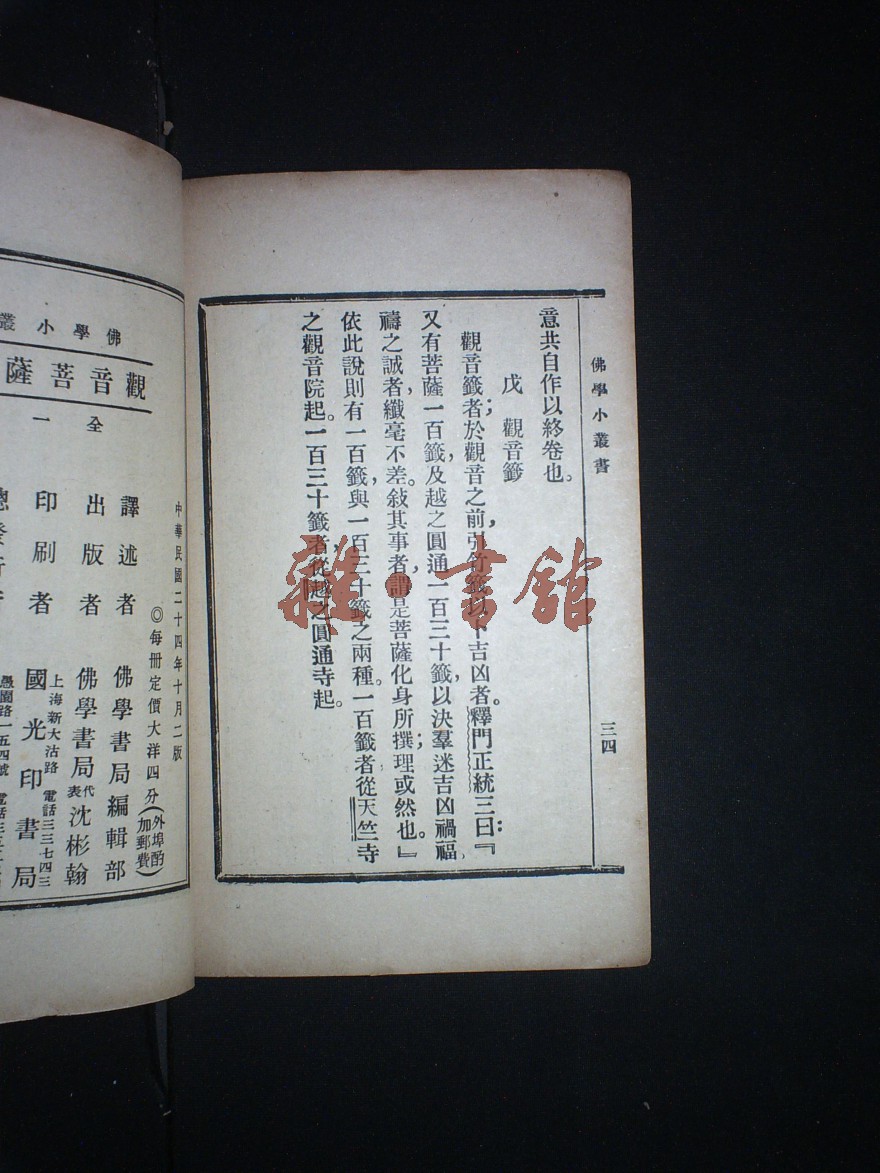 佛學小叢書
三四
意共自作以終卷也。
戊　觀音籤
觀音籤者；於觀音之前，引竹籤以卜吉凶者。釋門正統三曰：『
又有菩薩一百籤，及越之圓通一百三十籤，以決羣迷吉凶禍福。
禱之誠者，纖毫不差。敍其事者，謂是菩薩化身所撰，理或然也；』
依此說則有一百籤，與一百三十籤之兩種。一百籤者從天竺寺
之觀音院起。一百三十籤者，從越之圓通寺起。
雜·書館
佛學小叢
觀音菩薩
全一
中華民國二十四年十月二版
◎每冊定價大洋四分（外埠酌加郵費）
譯述者　佛學書局編輯部
出版者　佛學書局代表沈彬翰
上海新大沽路　電話三三七四三
印刷者　國光印書局
愚園路一五四號　電話